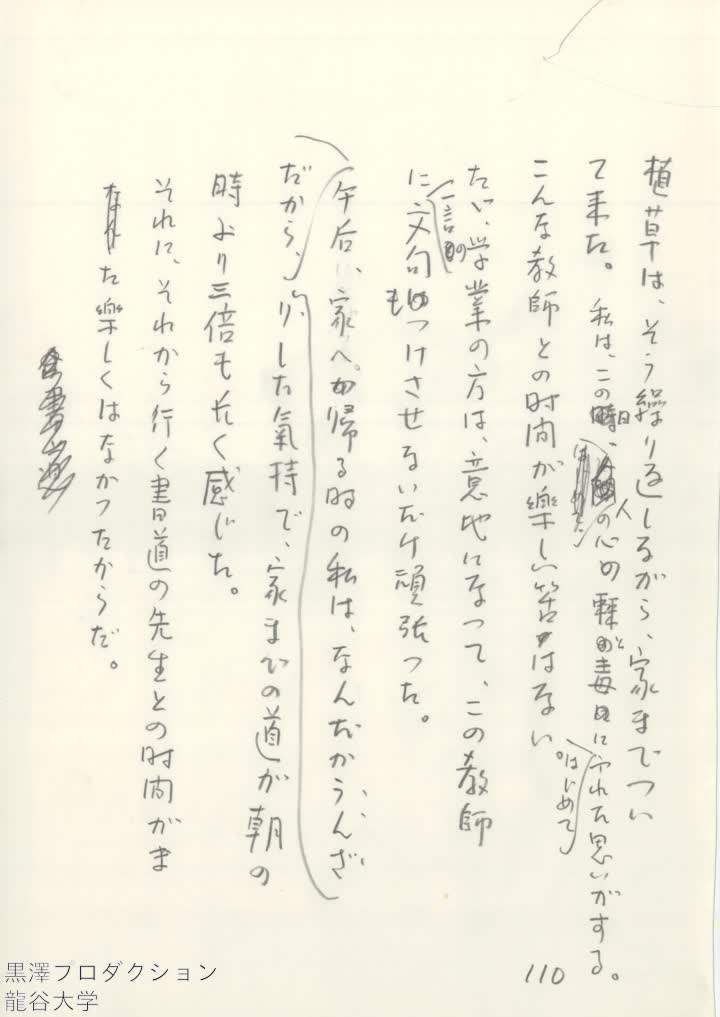 植草は、そう繰り返しながら、家までつい
て来た。私は、この日、人の心の棘と毒にはじめてふれた思いがする。
こんな教師との时间が楽しい筈はない。
たゞ、学業の方は、意地になって、この教師
に一言の文句もつけさせないだけ頑張った。
午后、家へ帰る时の私は、なんだかうんざ
だから、少した氣持で、家までの道が朝の
時より三倍も長く感じた。
それに、それから行く書道の先生との时间がま
た楽しくはなかったからだ。
110
黒澤プロダクション
龍谷大学